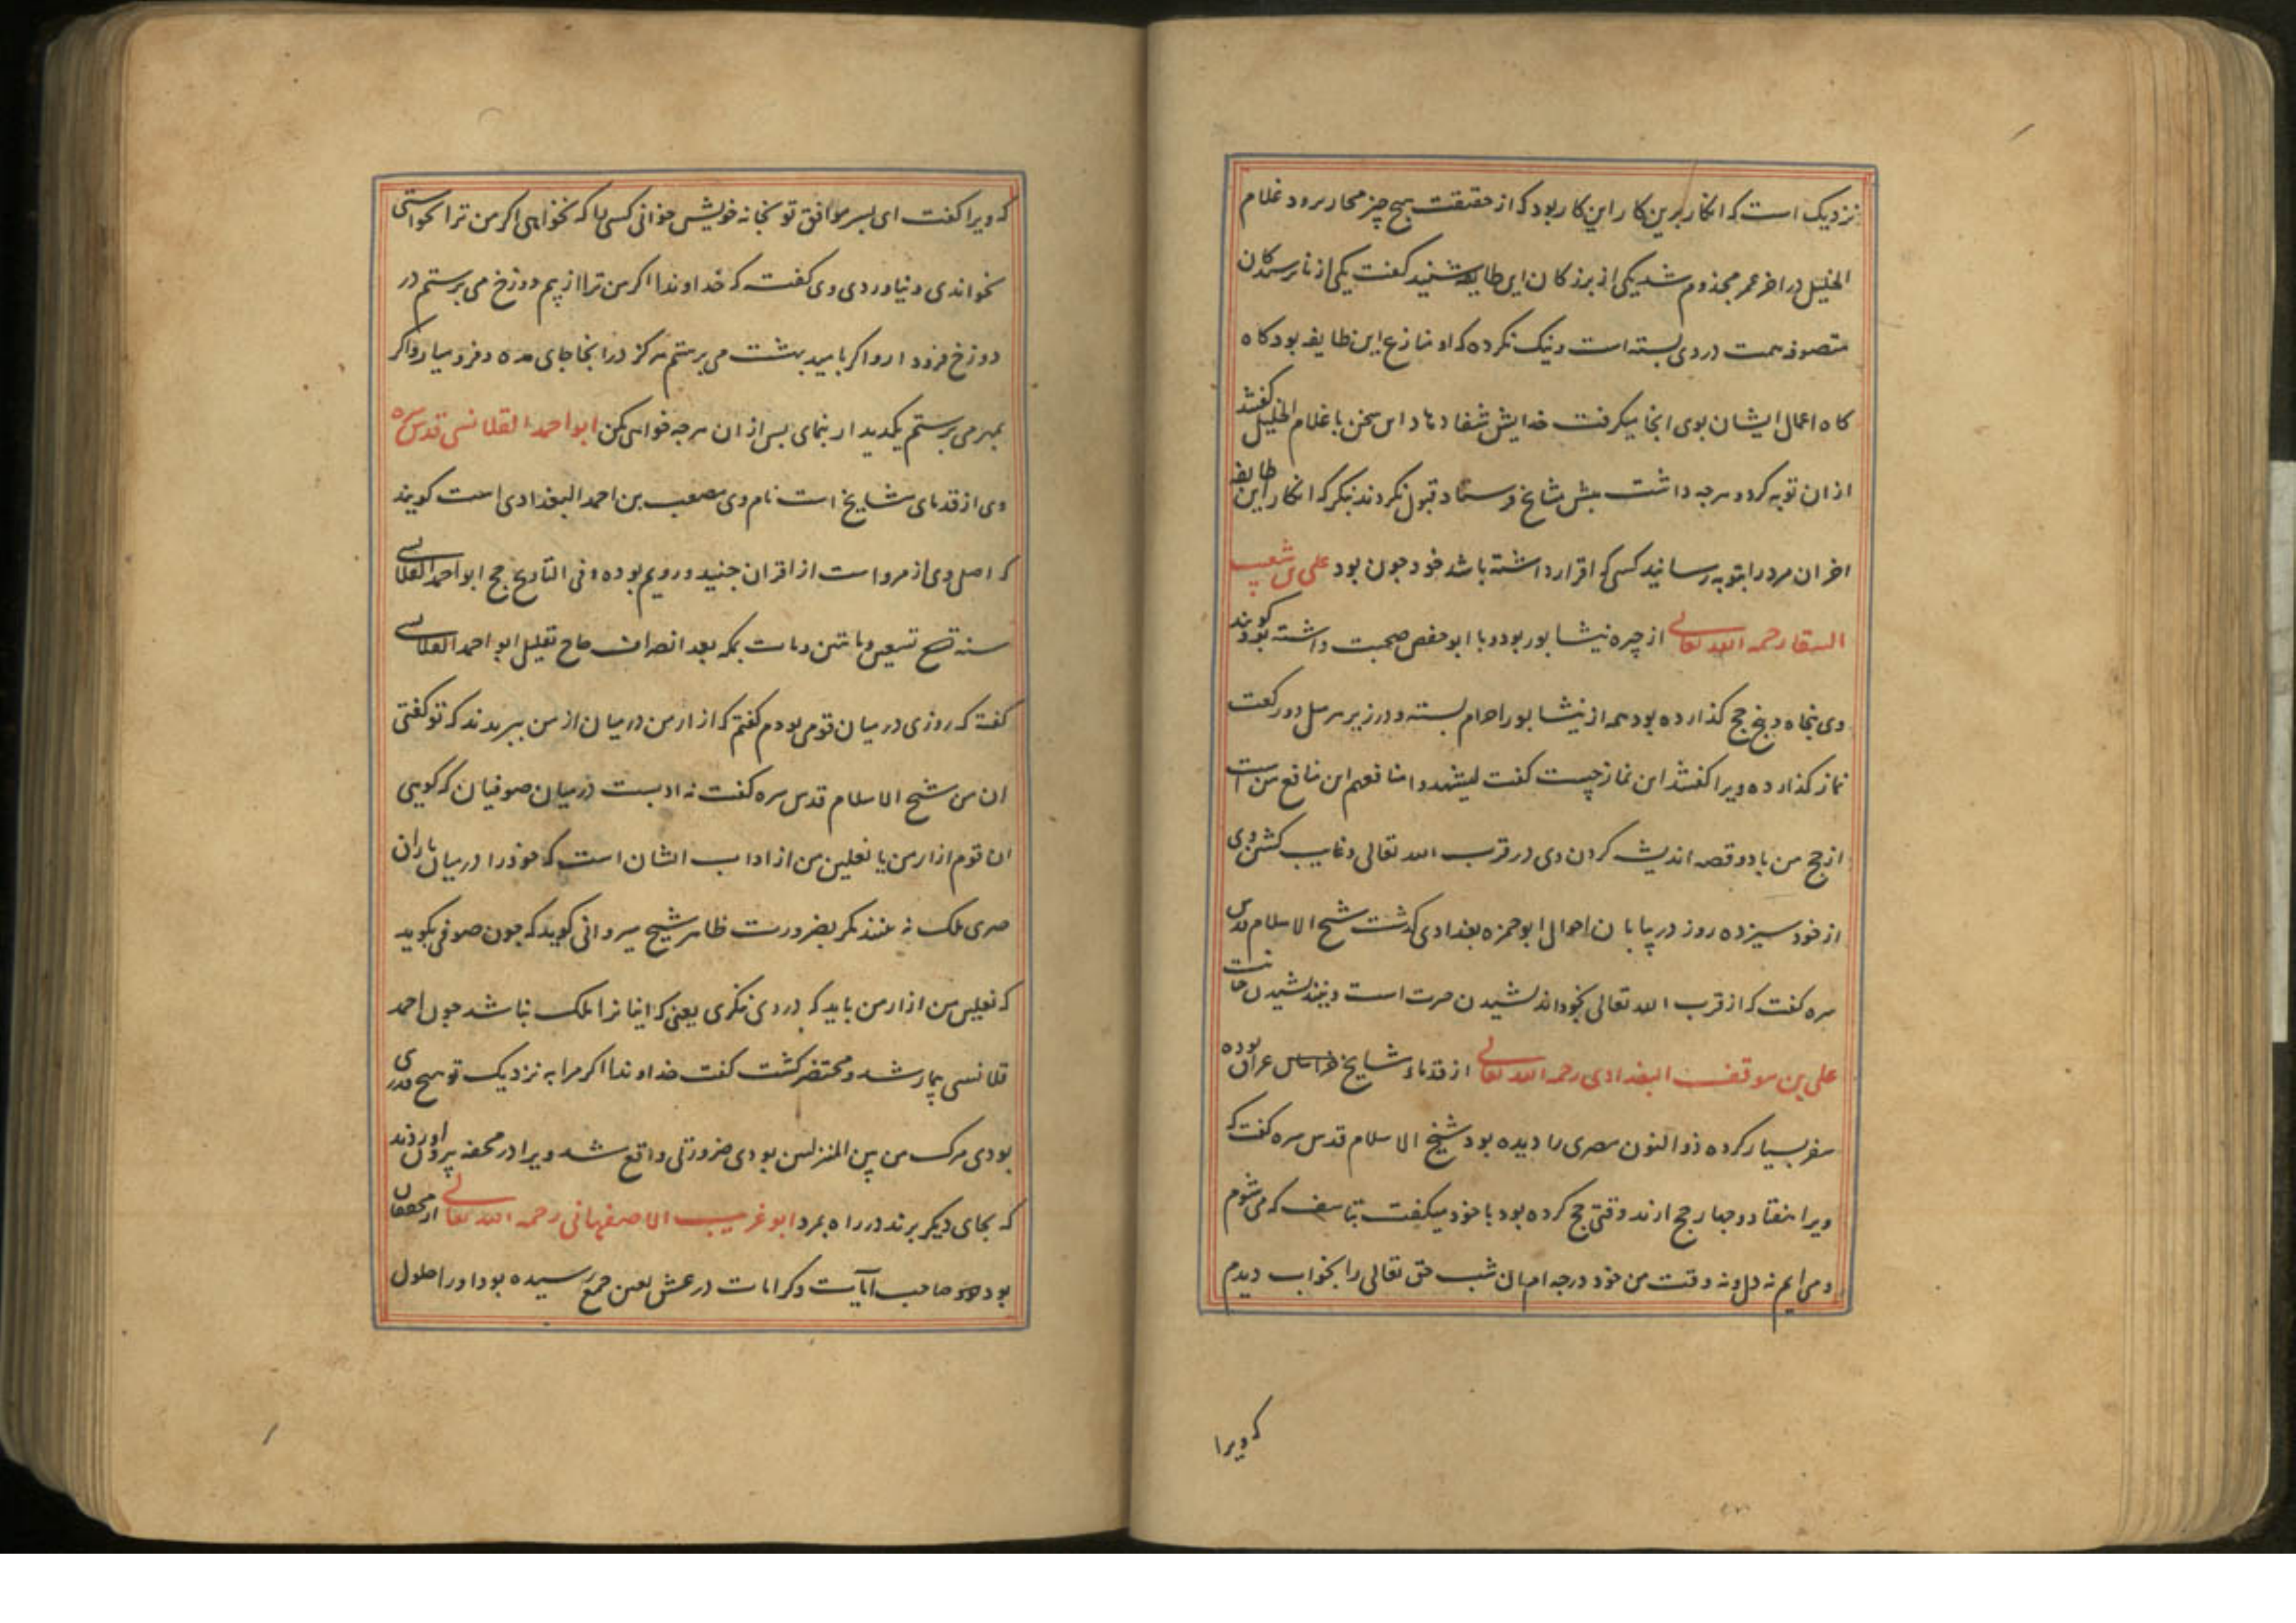 نزدیک است که انکار برین کار این کار بود که از حقیقت هیچ چیز رود غلام
الخلیل در اخر عمر مجذوم شد یکی از بزرکان این طایفه شنید کفت یکی از نارسیدکان
متصوفه همت در وی بسته است و نیک نکرده که او منازع این طایفه بود کاه
کاه اعمال ایشان بوی انجا میکرفت خدایش شفا دهاد این سخن با غلام الخلیل کفتند
ازان توبه کرد و هرچه داشت پیش مشایخ فرستاد قبول نکردند بنکر که انکار این طایفه
اخر ان مرد را بتوبه رسانید کسی که اقرار داشته باشد خود چون بود علی بن شعیب
السقا رحمه الله تعالی از حیره نیشابور بود و با ابو حفص صحبت داشته بود کویند
وی پنجاه و پنج حج کذارده بود همه از نیشابور احرام بسته و در زیر هر میل دو رکعت
نماز کذارده ویرا کفتند این نماز چیست کفت لیشهدوا منافعهم این منافع من است
از حج من با دو قصه اندیشه کردن وی در قرب الله تعالی و غایب کشتن وی
از خود سیزده روز در بیابان احوال ابو حمزه بغدادی کذشت شیخ الاسلام قدس
سره کفت که از قرب الله تعالی بخود اندیشیدن حرمت است و نیندیشیدن
علی بن موفق البغدادی رحمه الله تعالی از قدماء مشایخ عراق بوده
سفر بسیار کرده ذو النون مصری را دیده بود شیخ الاسلام قدس سره کفت که
ویرا هفتاد و چهار حج ارند وقتی حج کرده بود با خود میکفت بتاسف که می شوم
و می ایم نه دل و نه وقت من خود در چه ام ان شب حق تعالی را بخواب دیدم
که ویرا
که ویرا کفت ای پسر موافق تو بخانه خویش خوانی کسی را که نخواهی اکر من ترا نخواستی
نخواندی و نیاوردی وی کفت که خداوندا اکر من ترا از بیم دوزخ می پرستم در
دوزخ فرود ار و اکر بامید بهشت می پرستم هرکز در انجا جای مده و فرو میار و اکر
بمهر می پرستم یکدیدار بنمای پس از ان هرچه خواهی کن ابو احمد القلانسی قدس سره
وی از قدمای مشایخ است نام وی مصعب بن احمد البغدادی است کویند
که اصل وی از مرو است از اقران جنید و رویم بوده و فی التاریخ حج ابو احمد القلانسی
سنه تسعین و ماتین و مات بمکه بعد انصراف حاج بقلیل ابو احمد القلانسی
کفته که روزی در میان قومی بودم کفتم که ازار من در میان از من ببریدند که تو کفتی
ان من شیخ الاسلام قدس سره کفت نه ادبست در میان صوفیان که کویی
ان قوم ازار من یا نعلین من از اداب ایشان است که خود را در میان یاران
ملک نه بینند مکر بضرورت ظاهر شیخ سیروانی کوید که چون صوفی بکوید
که نعلین من ازار من باید که در وی نکری یعنی که اینانرا ملک نباشد چون احمد
قلانسی بیمار شد و محتضر کشت کفت خداوندا اکر مرا به نزدیک تو هیچ قدری
بودی مرک من بین المنزلین بودی ضرورتی واقع شد ویرا در محفه بیرون اوردند
که بجای دیکر برند در راه بمرد ابو غریب الاصفهانی رحمه الله تعالی از محققان
بود و صاحب ایات و کرامات در عشق بعین جمع رسیده بود او را حلول